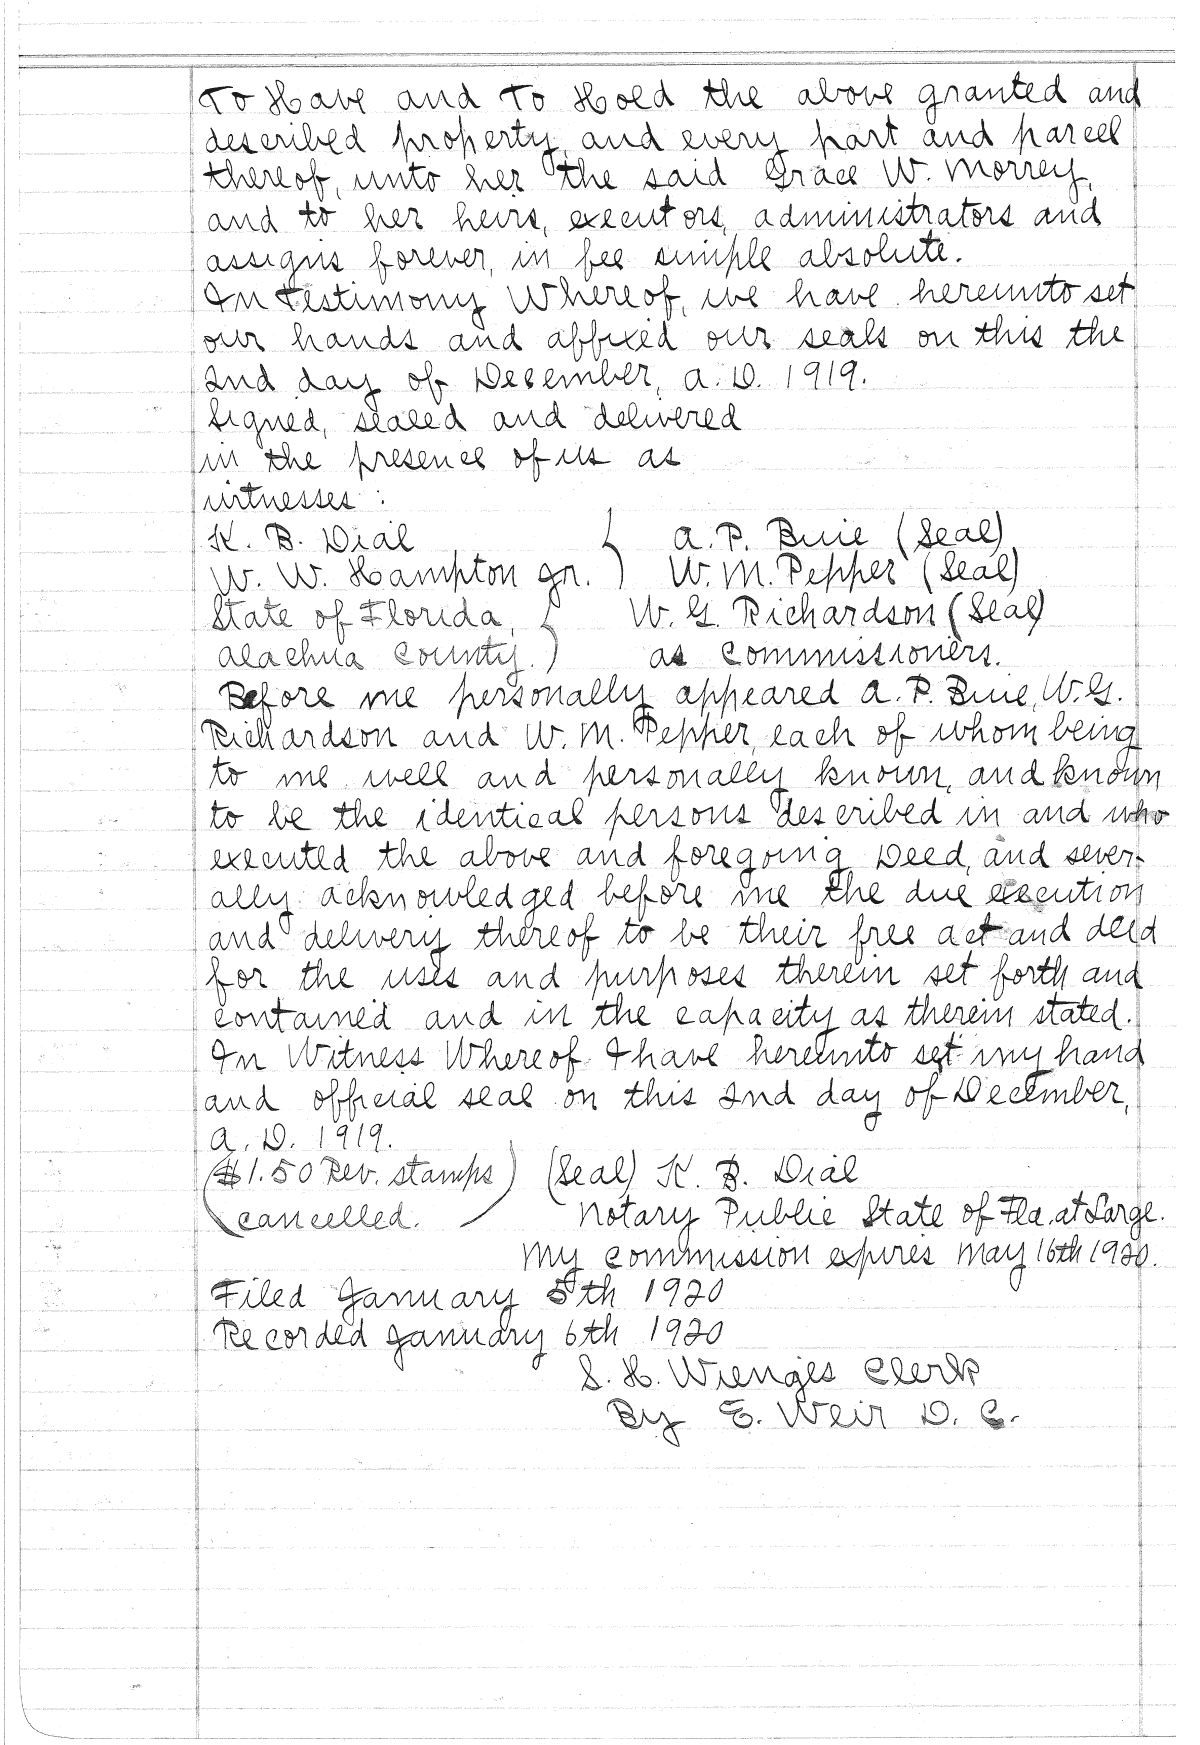 To Have and To Hold the above granted and
described property, and every part and parcel
thereof, unto her the said Grace W. Morrey,
and to her heirs, executors, administrators and
assigns forever, in fee simple absolute.
In Testimony Whereof, we have hereunto set
our hands and affixed our seals on this the
2nd day of December, A.D. 1919.
Signed, sealed and delivered
in the presence of us as
witnesses:
K. B. Dial } A. P. Buie (Seal)
W. W. Hampton Jr. W. M. Pepper (Seal)
State of Florida, } W. G. Richardson (Seal)
Alachua County. as Commissioners.
Before me personally appeared A. P. Buie, W. G.
Richardson and W. M. Pepper, each of whom being
to me well and personally known, and known
to be the identical persons described in and who
executed the above and foregoing Deed, and sever-
ally acknowledged before me the due execution
and delivery thereof to be their free act and deed
for the uses and purposes therein set forth and
contained and in the capacity as therein stated.
In Witness Whereof I have hereunto set my hand
and official seal on this 2nd day of December,
A. D. 1919.
($1.50 Rev. stamps) (Seal) K. B. Dial
cancelled. Notary Public State of Fla. at Large.
My commission expires May 16th 1920.
Filed January 5th 1920
Recorded January 6th 1920
S. H. Wienges Clerk
By E. Weir D. C.